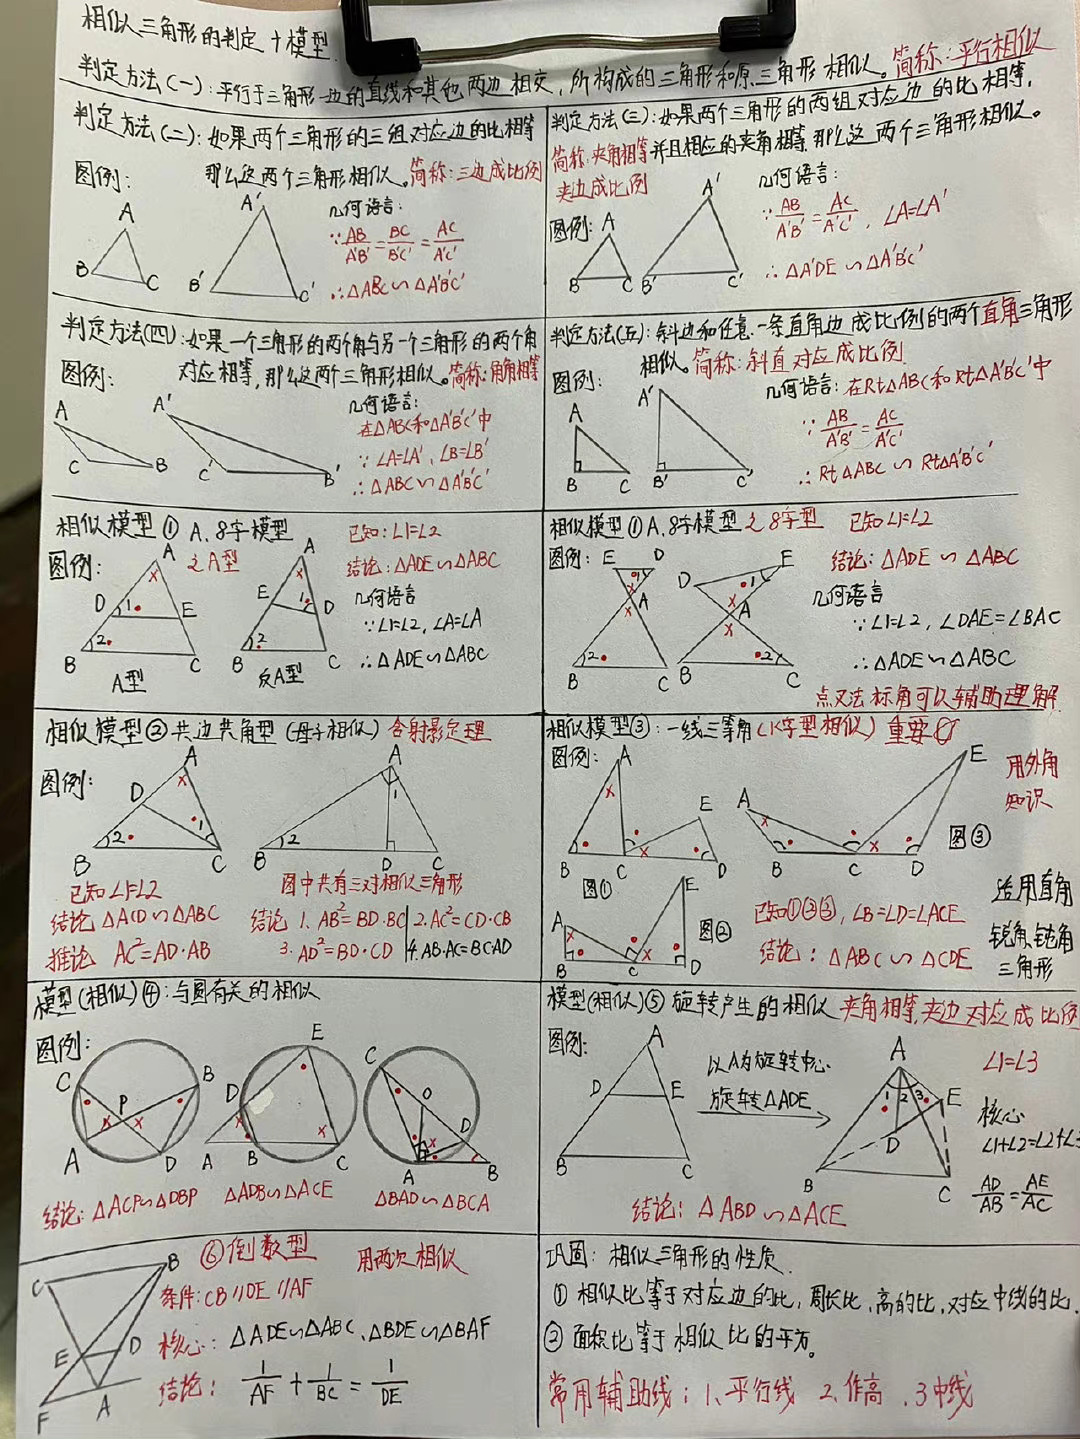 相似三角形的判定+模型
判定方法(一):平行于三角形一边的直线和其他两边相交,所构成的三角形和原三角形相似。简称:平行相似
判定方法(二):如果两个三角形的三组对应边的比相等
那么这两个三角形相似。简称:三边成比例
图例:
几何语言:
A
B
C
A'
B'
C'
∵AB/A'B'=BC/B'C'=AC/A'C'
∴△ABC∽△A'B'C'
判定方法(三):如果两个三角形的两组对应边的比相等,
简称:夹角相等并且相应的夹角相等,那么这两个三角形相似。
夹边成比例
图例:
几何语言:
A
B
C
A'
B'
C'
∵AB/A'B'=AC/A'C',∠A=∠A'
∴△A'DE∽△A'B'C'
判定方法(四):如果一个三角形的两个角与另一个三角形的两个角
对应相等,那么这两个三角形相似。简称:角角相等
图例:
几何语言:
A
C
B
A'
C'
B'
在△ABC和△A'B'C'中
∵∠A=∠A',∠B=∠B'
∴△ABC∽△A'B'C'
判定方法(五):斜边和任意一条直角边成比例的两个直角三角形
相似。简称:斜直对应成比例
图例:
几何语言:在Rt△ABC和Rt△A'B'C'中
A
B
C
A'
B'
C'
∵AB/A'B'=AC/A'C'
∴Rt△ABC∽Rt△A'B'C'
相似模型①A、8字模型
之A型
图例:
已知:∠1=∠2
结论:△ADE∽△ABC
几何语言
∵∠1=∠2,∠A=∠A
∴△ADE∽△ABC
A
D
1
E
2
B
C
A型
A
E
1
D
2
B
C
反A型
相似模型①A、8字模型之8字型 已知∠1=∠2
图例:
结论:△ADE∽△ABC
几何语言
∵∠1=∠2,∠DAE=∠BAC
∴△ADE∽△ABC
点叉法标角可以辅助理解
E
D
1
A
2
B
C
D
E
1
A
2
B
C
相似模型②共边共角型(母子相似)含射影定理
图例:
A
D
1
2
B
C
A
1
2
B
D
C
已知∠1=∠2
结论△ACD∽△ABC
推论 AC²=AD·AB
图中共有三对相似三角形
结论 1. AB²=BD·BC 2. AC²=CD·CB
3. AD²=BD·CD 4. AB·AC=BC·AD
相似模型③:一线三等角(K字型相似)重要
图例:
用外角
知识
A
E
B
C
D
图①
A
E
B
C
D
图②
A
E
B
C
D
图③
已知①②③,∠B=∠D=∠ACE
结论:△ABC∽△CDE
适用直角
锐角、钝角
三角形
模型(相似)④:与圆有关的相似
图例:
C
B
P
A
D
E
D
A
B
C
C
O
D
A
B
结论:△ACP∽△DBP
△ADB∽△ACE
△BAD∽△BCA
模型(相似)⑤旋转产生的相似 夹角相等,夹边对应成比例
图例:
A
D
E
B
C
以A为旋转中心
旋转△ADE
A
1
2
3
E
D
B
C
∠1=∠3
核心
∠1+∠2=∠2+∠3
AD/AB=AE/AC
结论:△ABD∽△ACE
⑥倒数型 用两次相似
条件:CB∥DE∥AF
核心:△ADE∽△ABC、△BDE∽△BAF
结论:1/AF+1/BC=1/DE
C
B
E
D
F
A
巩固:相似三角形的性质
①相似比等于对应边的比,周长比,高的比,对应中线的比.
②面积比等于相似比的平方。
常用辅助线:1、平行线 2、作高、3中线